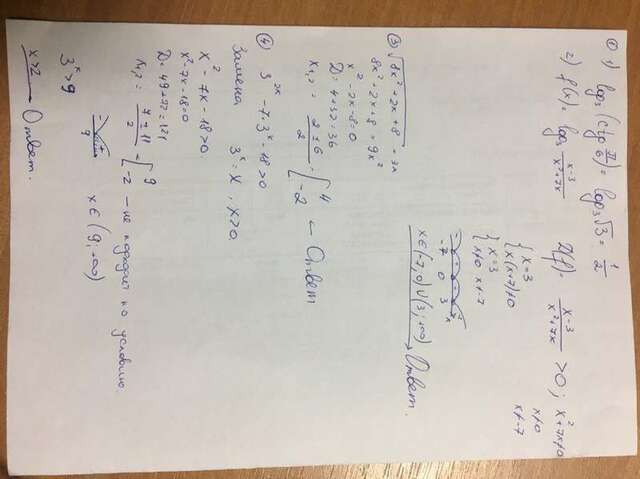 ① 1) log₃(ctg π/6) = log₃√3 = 1/2
2) f(x) = log₅ (x-3)/(x²+7x) D(f) = (x-3)/(x²+7x) > 0; x²+7x≠0
x≠0
x≠-7
{ x=3
x(x+7)≠0
{ x=3
x≠0 x≠-7
-7 0 3 x
x∈(-7;0)∪(3;+∞) → Ответ.
③ √(8x²+2x+8) = 3x
8x²+2x+8 = 9x²
x²-2x-8=0
D=4+32=36
x₁,₂ = (2±6)/2 = [ 4 ← Ответ
-2
④ 3²ˣ-7·3ˣ-18>0
Замена 3ˣ=x, x>0
x²-7x-18>0
x²-7x-18=0
D=49+72=121
x₁,₂ = (7±11)/2 = [ 9
-2 - не подходит по условию.
9 x∈(9;+∞)
3ˣ>9
x>2 → Ответ.